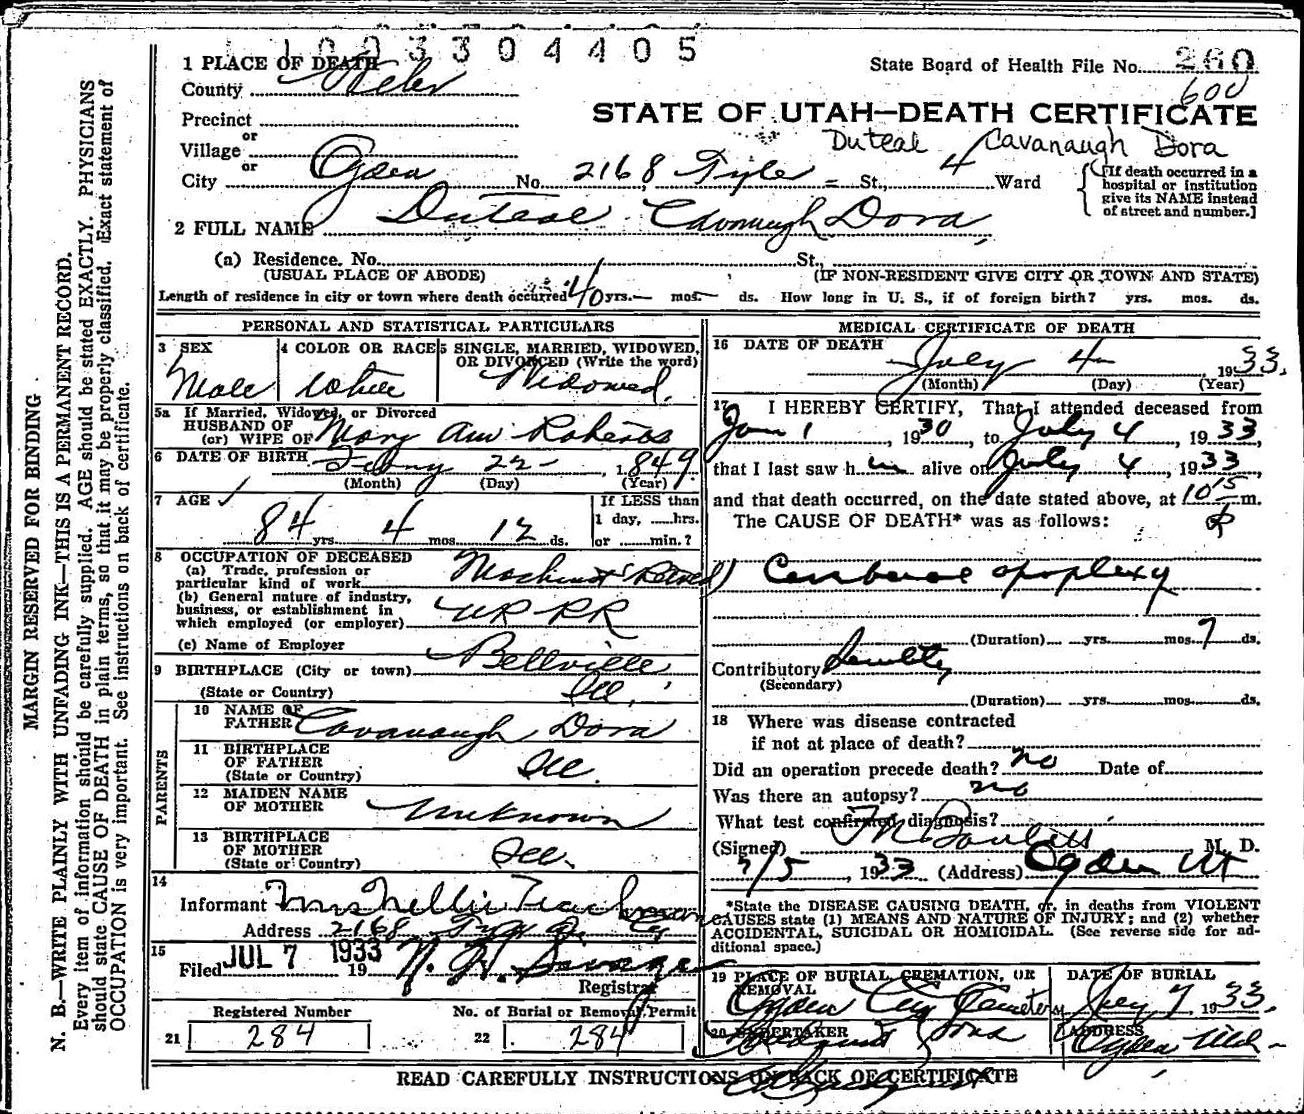 1003304405
1 PLACE OF DEATH
State Board of Health File No. 260
County Weber
600
STATE OF UTAH—DEATH CERTIFICATE
Precinct
or
Village
Duteal Cavanaugh Dora
or
City Ogden No. 2168 Tyler St., 4 Ward
{[If death occurred in a
hospital or institution
give its NAME instead
of street and number.]
2 FULL NAME Duteal Cavanaugh Dora,
(a) Residence. No. St.,
(USUAL PLACE OF ABODE) (IF NON-RESIDENT GIVE CITY OR TOWN AND STATE)
Length of residence in city or town where death occurred 40 yrs. — mos — ds. How long in U. S., if of foreign birth? yrs. mos. ds.
MARGIN RESERVED FOR BINDING
N. B.—WRITE PLAINLY WITH UNFADING INK—THIS IS A PERMANENT RECORD.
Every item of information should be carefully supplied. AGE should be stated EXACTLY. PHYSICIANS
should state CAUSE OF DEATH in plain terms, so that it may be properly classified. Exact statement of
OCCUPATION is very important. See instructions on back of certificate.
PERSONAL AND STATISTICAL PARTICULARS
3 SEX
4 COLOR OR RACE
5 SINGLE, MARRIED, WIDOWED,
OR DIVORCED (Write the word)
Male White Widowed.
5a If Married, Widowed, or Divorced
HUSBAND OF
(or) WIFE OF Mary Ann Roberts
6 DATE OF BIRTH 22- , 1849
(Month) (Day) (Year)
7 AGE
If LESS than
1 day, ......hrs.
84 yrs. 4 mos. 12 ds. or ......min.?
8 OCCUPATION OF DECEASED
(a) Trade, profession or
particular kind of work Machinist (Retired)
(b) General nature of industry,
business, or establishment in
which employed (or employer) UP RR
(c) Name of Employer
9 BIRTHPLACE (City or town) Bellville
(State or Country) Ill.
PARENTS
10 NAME OF
FATHER Cavanaugh Dora
11 BIRTHPLACE
OF FATHER
(State or Country) Ill.
12 MAIDEN NAME
OF MOTHER Unknown
13 BIRTHPLACE
OF MOTHER
(State or Country) Ill.
14
Informant Mrs Nellie
Address 2168
15
Filed JUL 7 1933 19
Registrar
Registered Number
No. of Burial or Removal Permit
21 284
22 284
MEDICAL CERTIFICATE OF DEATH
16 DATE OF DEATH July 4 — , 1933.
(Month) (Day) (Year)
17 I HEREBY CERTIFY, That I attended deceased from
Jan 1 , 1930, to July 4, 1933,
that I last saw him alive on July 4, 1933,
and that death occurred, on the date stated above, at 10 15 m.
P
The CAUSE OF DEATH* was as follows:
Cerebral apoplexy
(Duration) yrs. mos. 7 ds.
Contributory Senility
(Secondary)
(Duration) yrs. mos. ds.
18 Where was disease contracted
if not at place of death?
Did an operation precede death? no Date of
Was there an autopsy? no
What test confirmed diagnosis?
(Signed) M. D.
7/5, 1933 (Address) Ogden Ut
*State the DISEASE CAUSING DEATH, or, in deaths from VIOLENT
CAUSES state (1) MEANS AND NATURE OF INJURY; and (2) whether
ACCIDENTAL, SUICIDAL OR HOMICIDAL. (See reverse side for ad-
ditional space.)
19 PLACE OF BURIAL, CREMATION, OR
REMOVAL
Ogden City Cemetery
DATE OF BURIAL
July 7, 1933.
20 UNDERTAKER
Sons
ADDRESS
Ogden Utah
READ CAREFULLY INSTRUCTIONS ON BACK OF CERTIFICATE